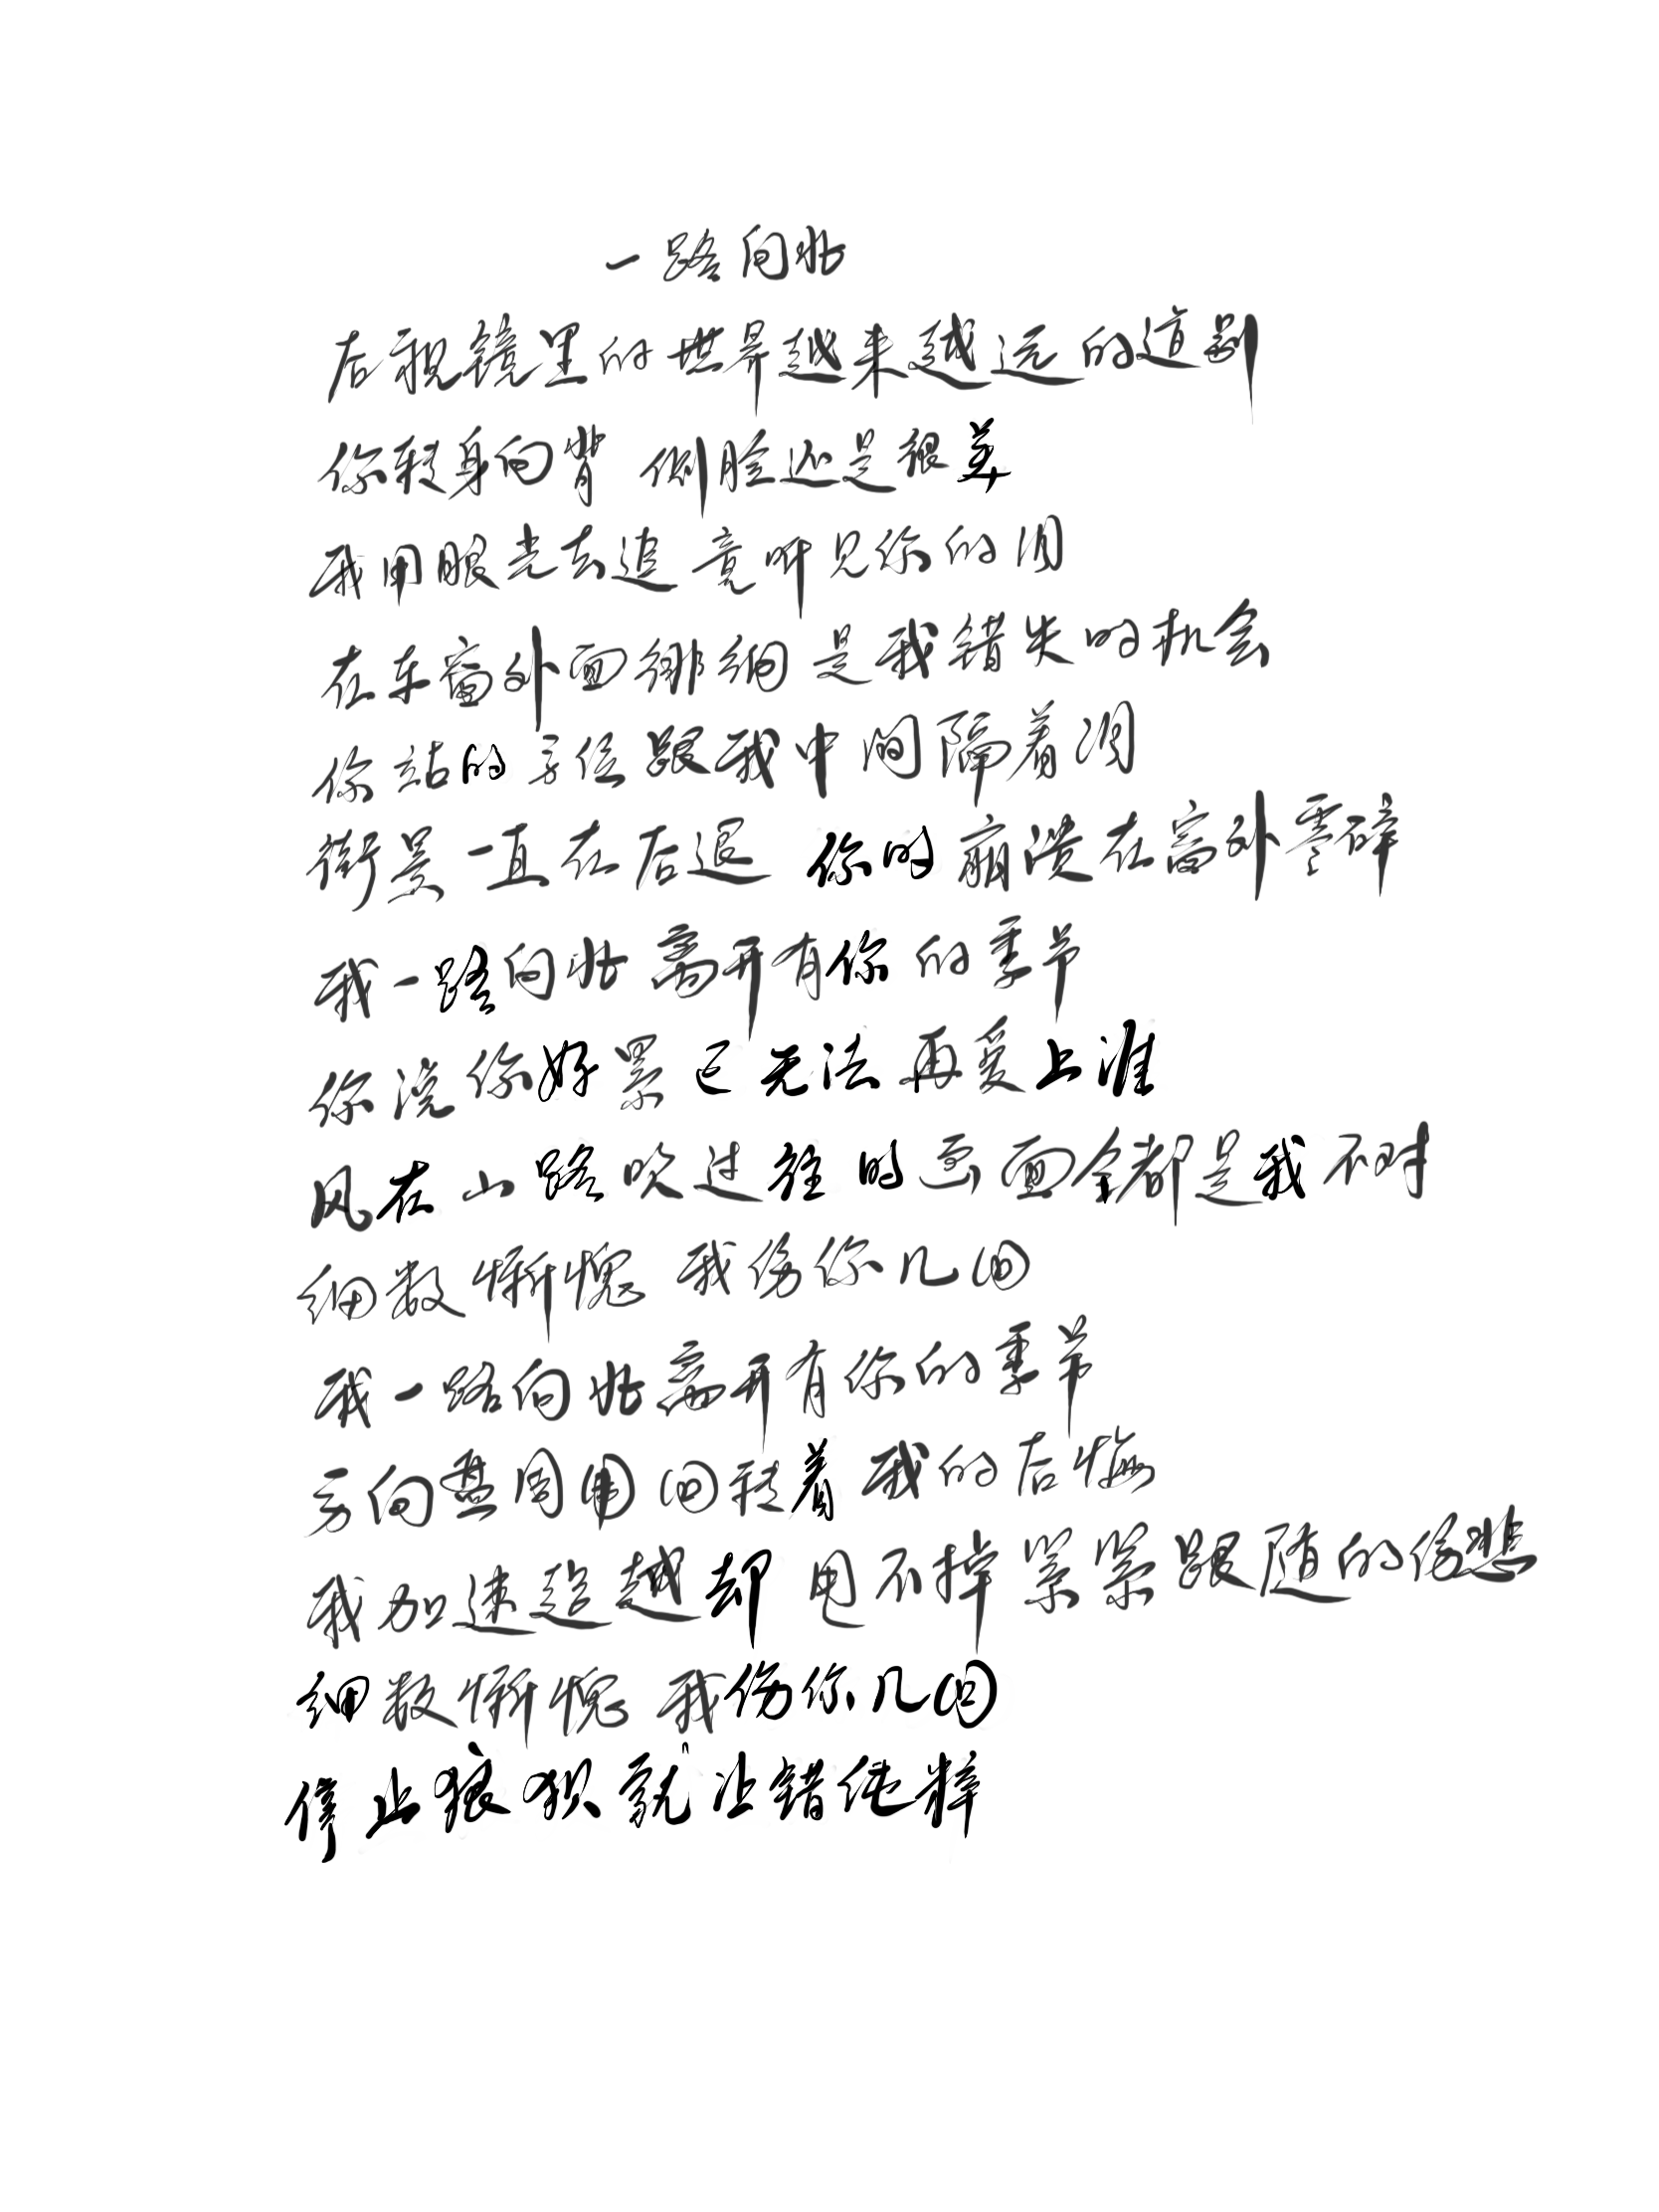 一路向北
后视镜里的世界越来越远的道别
你转身向背 侧脸还是很美
我用眼光去追 竟听见你的泪
在车窗外面徘徊 是我错失的机会
你站的方位跟我中间隔着泪
街景一直在后退 你的崩溃在窗外零碎
我一路向北 离开有你的季节
你说你好累 已无法再爱上谁
风在山路吹 过往的画面全都是我不对
细数惭愧 我伤你几回
我一路向北 离开有你的季节
方向盘周围 回转着 我的后悔
我加速超越却 甩不掉紧紧跟随的伤悲
细数惭愧 我伤你几回
停止狼狈 就让错纯粹